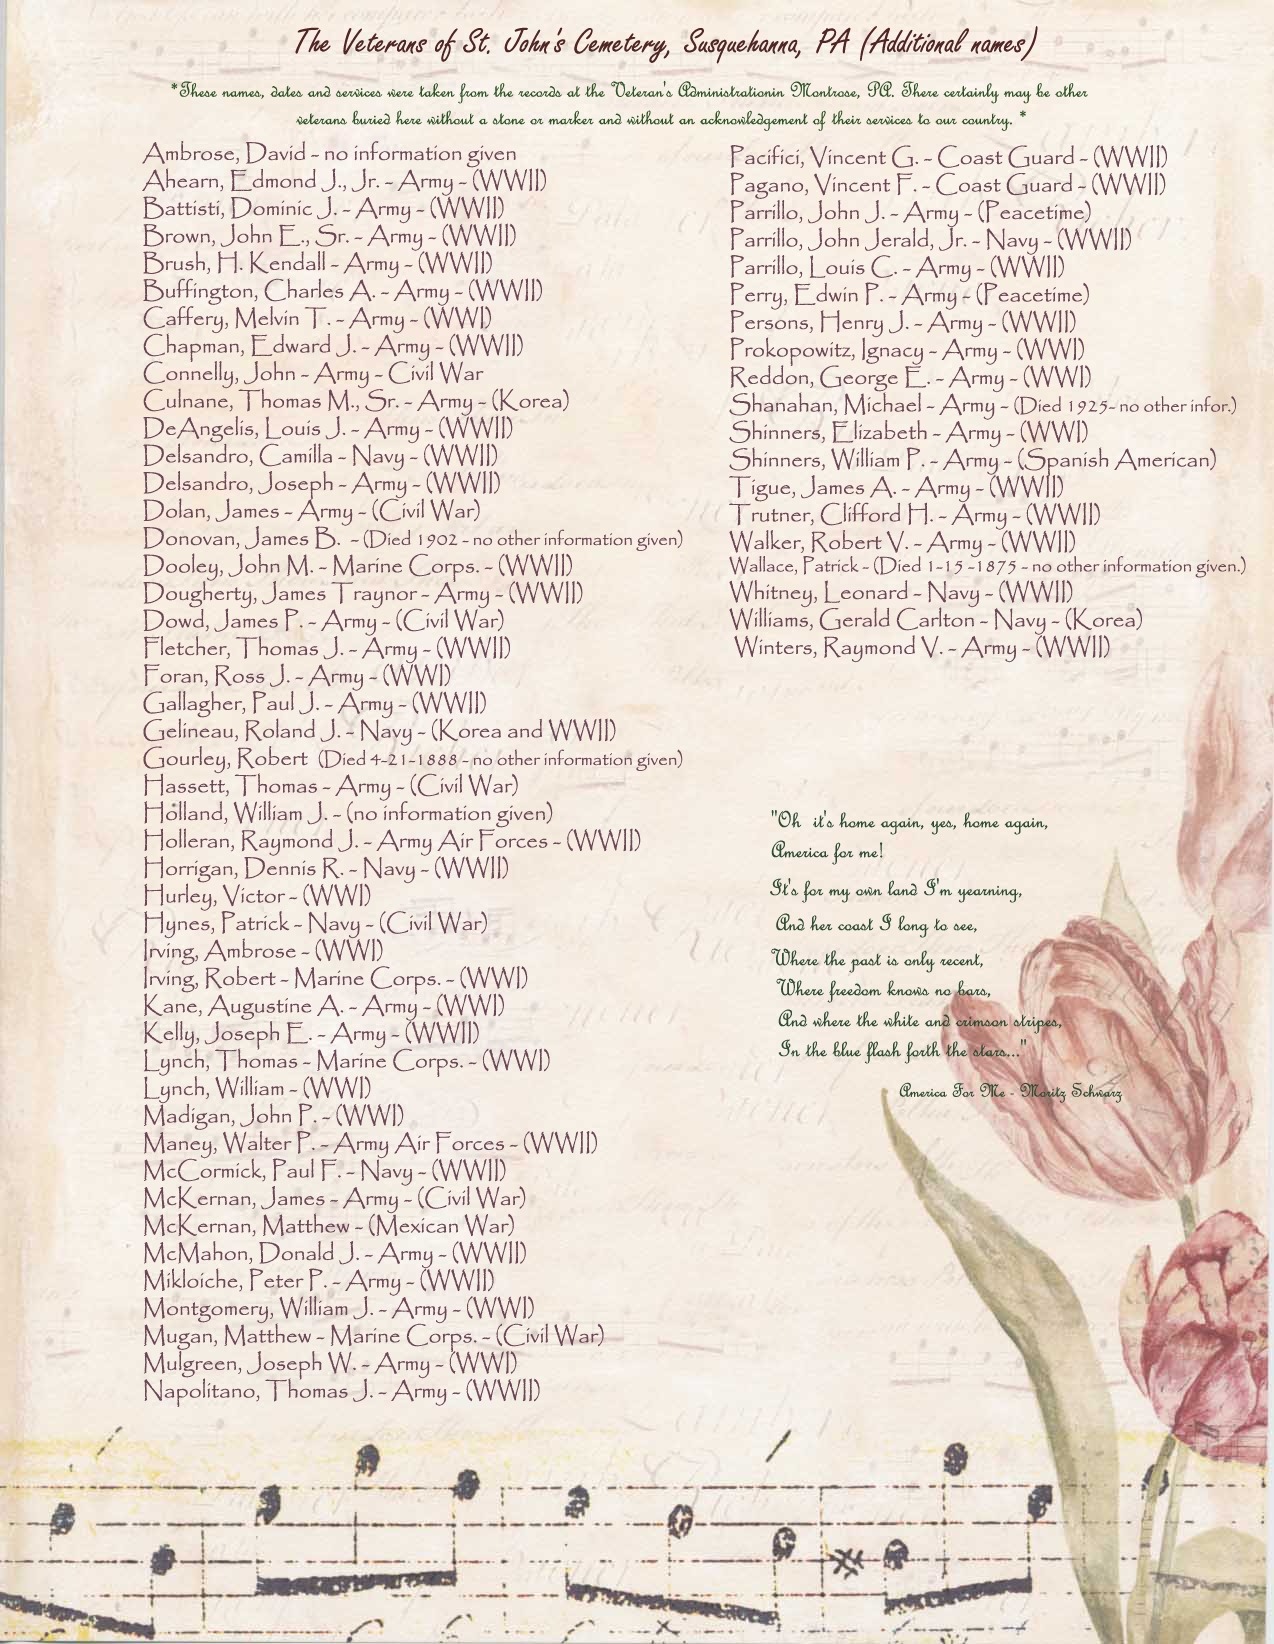 The Veterans of St. John's Cemetery, Susquehanna, PA (Additional names)
*These names, dates and services were taken from the records at the Veteran's Administrationin Montrose, PA. There certainly may be other
veterans buried here without a stone or marker and without an acknowledgement of their services to our country. *
Ambrose, David - no information given
Ahearn, Edmond J., Jr. - Army - (WWII)
Battisti, Dominic J. - Army - (WWII)
Brown, John E., Sr. - Army - (WWII)
Brush, H. Kendall - Army - (WWII)
Buffington, Charles A. - Army - (WWII)
Caffery, Melvin T. - Army - (WWI)
Chapman, Edward J. - Army - (WWII)
Connelly, John - Army - Civil War
Culnane, Thomas M., Sr. - Army - (Korea)
DeAngelis, Louis J. - Army - (WWII)
Delsandro, Camilla - Navy - (WWII)
Delsandro, Joseph - Army - (WWII)
Dolan, James - Army - (Civil War)
Donovan, James B. - (Died 1902 - no other information given)
Dooley, John M. - Marine Corps. - (WWII)
Dougherty, James Traynor - Army - (WWII)
Dowd, James P. - Army - (Civil War)
Fletcher, Thomas J. - Army - (WWII)
Foran, Ross J. - Army - (WWI)
Gallagher, Paul J. - Army - (WWII)
Gelineau, Roland J. - Navy - (Korea and WWII)
Gourley, Robert (Died 4-21-1888 - no other information given)
Hassett, Thomas - Army - (Civil War)
Holland, William J. - (no information given)
Holleran, Raymond J. - Army Air Forces - (WWII)
Horrigan, Dennis R. - Navy - (WWII)
Hurley, Victor - (WWI)
Hynes, Patrick - Navy - (Civil War)
Irving, Ambrose - (WWI)
Irving, Robert - Marine Corps. - (WWI)
Kane, Augustine A. - Army - (WWI)
Kelly, Joseph E. - Army - (WWII)
Lynch, Thomas - Marine Corps. - (WWI)
Lynch, William - (WWI)
Madigan, John P. - (WWI)
Maney, Walter P. - Army Air Forces - (WWII)
McCormick, Paul F. - Navy - (WWII)
McKernan, James - Army - (Civil War)
McKernan, Matthew - (Mexican War)
McMahon, Donald J. - Army - (WWII)
Mikloiche, Peter P. - Army - (WWII)
Montgomery, William J. - Army - (WWI)
Mugan, Matthew - Marine Corps. - (Civil War)
Mulgreen, Joseph W. - Army - (WWI)
Napolitano, Thomas J. - Army - (WWII)
Pacifici, Vincent G. - Coast Guard - (WWII)
Pagano, Vincent F. - Coast Guard - (WWII)
Parrillo, John J. - Army - (Peacetime)
Parrillo, John Jerald, Jr. - Navy - (WWII)
Parrillo, Louis C. - Army - (WWII)
Perry, Edwin P. - Army - (Peacetime)
Persons, Henry J. - Army - (WWII)
Prokopowitz, Ignacy - Army - (WWI)
Reddon, George E. - Army - (WWI)
Shanahan, Michael - Army - (Died 1925- no other infor.)
Shinners, Elizabeth - Army - (WWI)
Shinners, William P. - Army - (Spanish American)
Tigue, James A. - Army - (WWII)
Trutner, Clifford H. - Army - (WWII)
Walker, Robert V. - Army - (WWII)
Wallace, Patrick - (Died 1-15 -1875 - no other information given.)
Whitney, Leonard - Navy - (WWII)
Williams, Gerald Carlton - Navy - (Korea)
Winters, Raymond V. - Army - (WWII)
"Oh it's home again, yes, home again,
America for me!
It's for my own land I'm yearning,
And her coast I long to see,
Where the past is only recent,
Where freedom knows no bars,
And where the white and crimson stripes,
In the blue flash forth the stars..."
America For Me - Moritz Schwarz